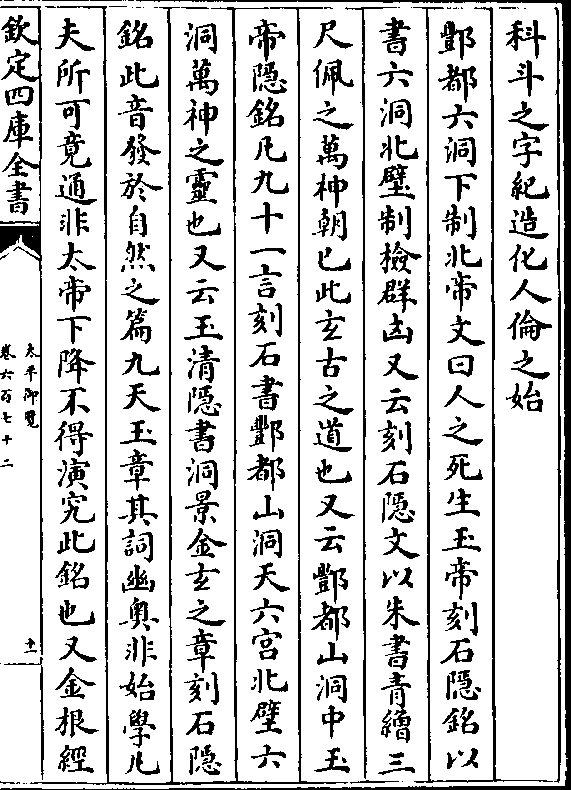 科斗之字紀造化人倫之始
酆都六洞下制北帝文曰人之死生玉帝刻石隠銘以
書六洞北壁制檢群凶又云刻石隠文以朱書青繒三
尺佩之萬神朝已此玄古之道也又云酆都山洞中玉
帝隠銘凡九十一言刻石書酆都山洞天六宫北壁六
洞萬神之靈也又云玉清隠書洞景金玄之章刻石隠
銘此音發於自然之篇九天玉章其詞幽奥非始學凡
夫所可竟通非太帝下降不得演究此銘也又金根經
欽定四庫全書
太平御覽
卷六百七十二
十一